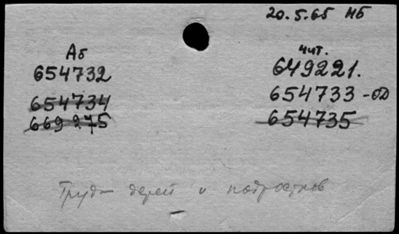 20.5.65 МБ
Аб
654732
654734
669275
чит.
649221.
654733-ОД
654735
Труд детей и подростков